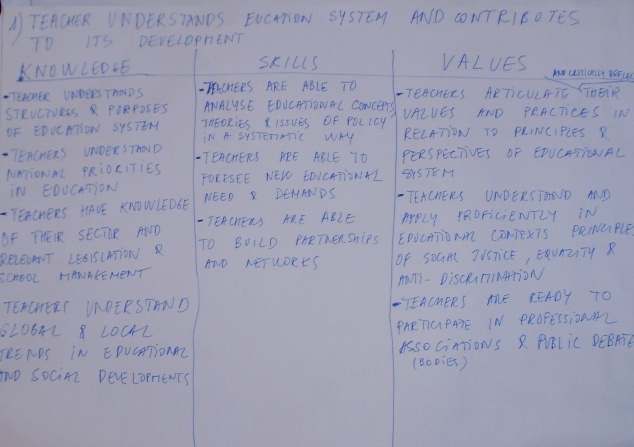 1) TEACHER UNDERSTANDS EUCATION SYSTEM AND CONTRIBUTES
TO ITS DEVELOPMENT
KNOWLEDGE
- TEACHER UNDERSTANDS
STRUCTURES & PURPOSES
OF EDUCATION SYSTEM
- TEACHERS UNDERSTAND
NATIONAL PRIORITIES
IN EDUCATION
- TEACHERS HAVE KNOWLEDGE
OF THEIR SECTOR AND
RELEVANT LEGISLATION &
SCHOOL MANAGEMENT
TEACHERS UNDERSTAND
GLOBAL & LOCAL
TRENDS IN EDUCATIONAL
AND SOCIAL DEVELOPMENTS
SKILLS
- TEACHERS ARE ABLE TO
ANALYSE EDUCATIONAL CONCEPTS
THEORIES & ISSUES OF POLICY
IN A SYSTEMATIC WAY
- TEACHERS ARE ABLE TO
FORESEE NEW EDUCATIONAL
NEED & DEMANDS
- TEACHERS ARE ABLE
TO BUILD PARTNERSHIPS
AND NETWORKS
VALUES
AND CRITICALLY REFLEC
- TEACHERS ARTICULATE THEIR
VALUES AND PRACTICES IN
RELATION TO PRINCIPLES &
PERSPECTIVES OF EDUCATIONAL
SYSTEM
- TEACHERS UNDERSTAND AND
APPLY PROFICIENTLY IN
EDUCATIONAL CONTEXTS PRINCIPLES
OF SOCIAL JUSTICE, EQUALITY &
ANTI-DISCRIMINATION
- TEACHERS ARE READY TO
PARTICIPATE IN PROFESSIONAL
ASSOCIATIONS & PUBLIC DEBATE
(BODIES)